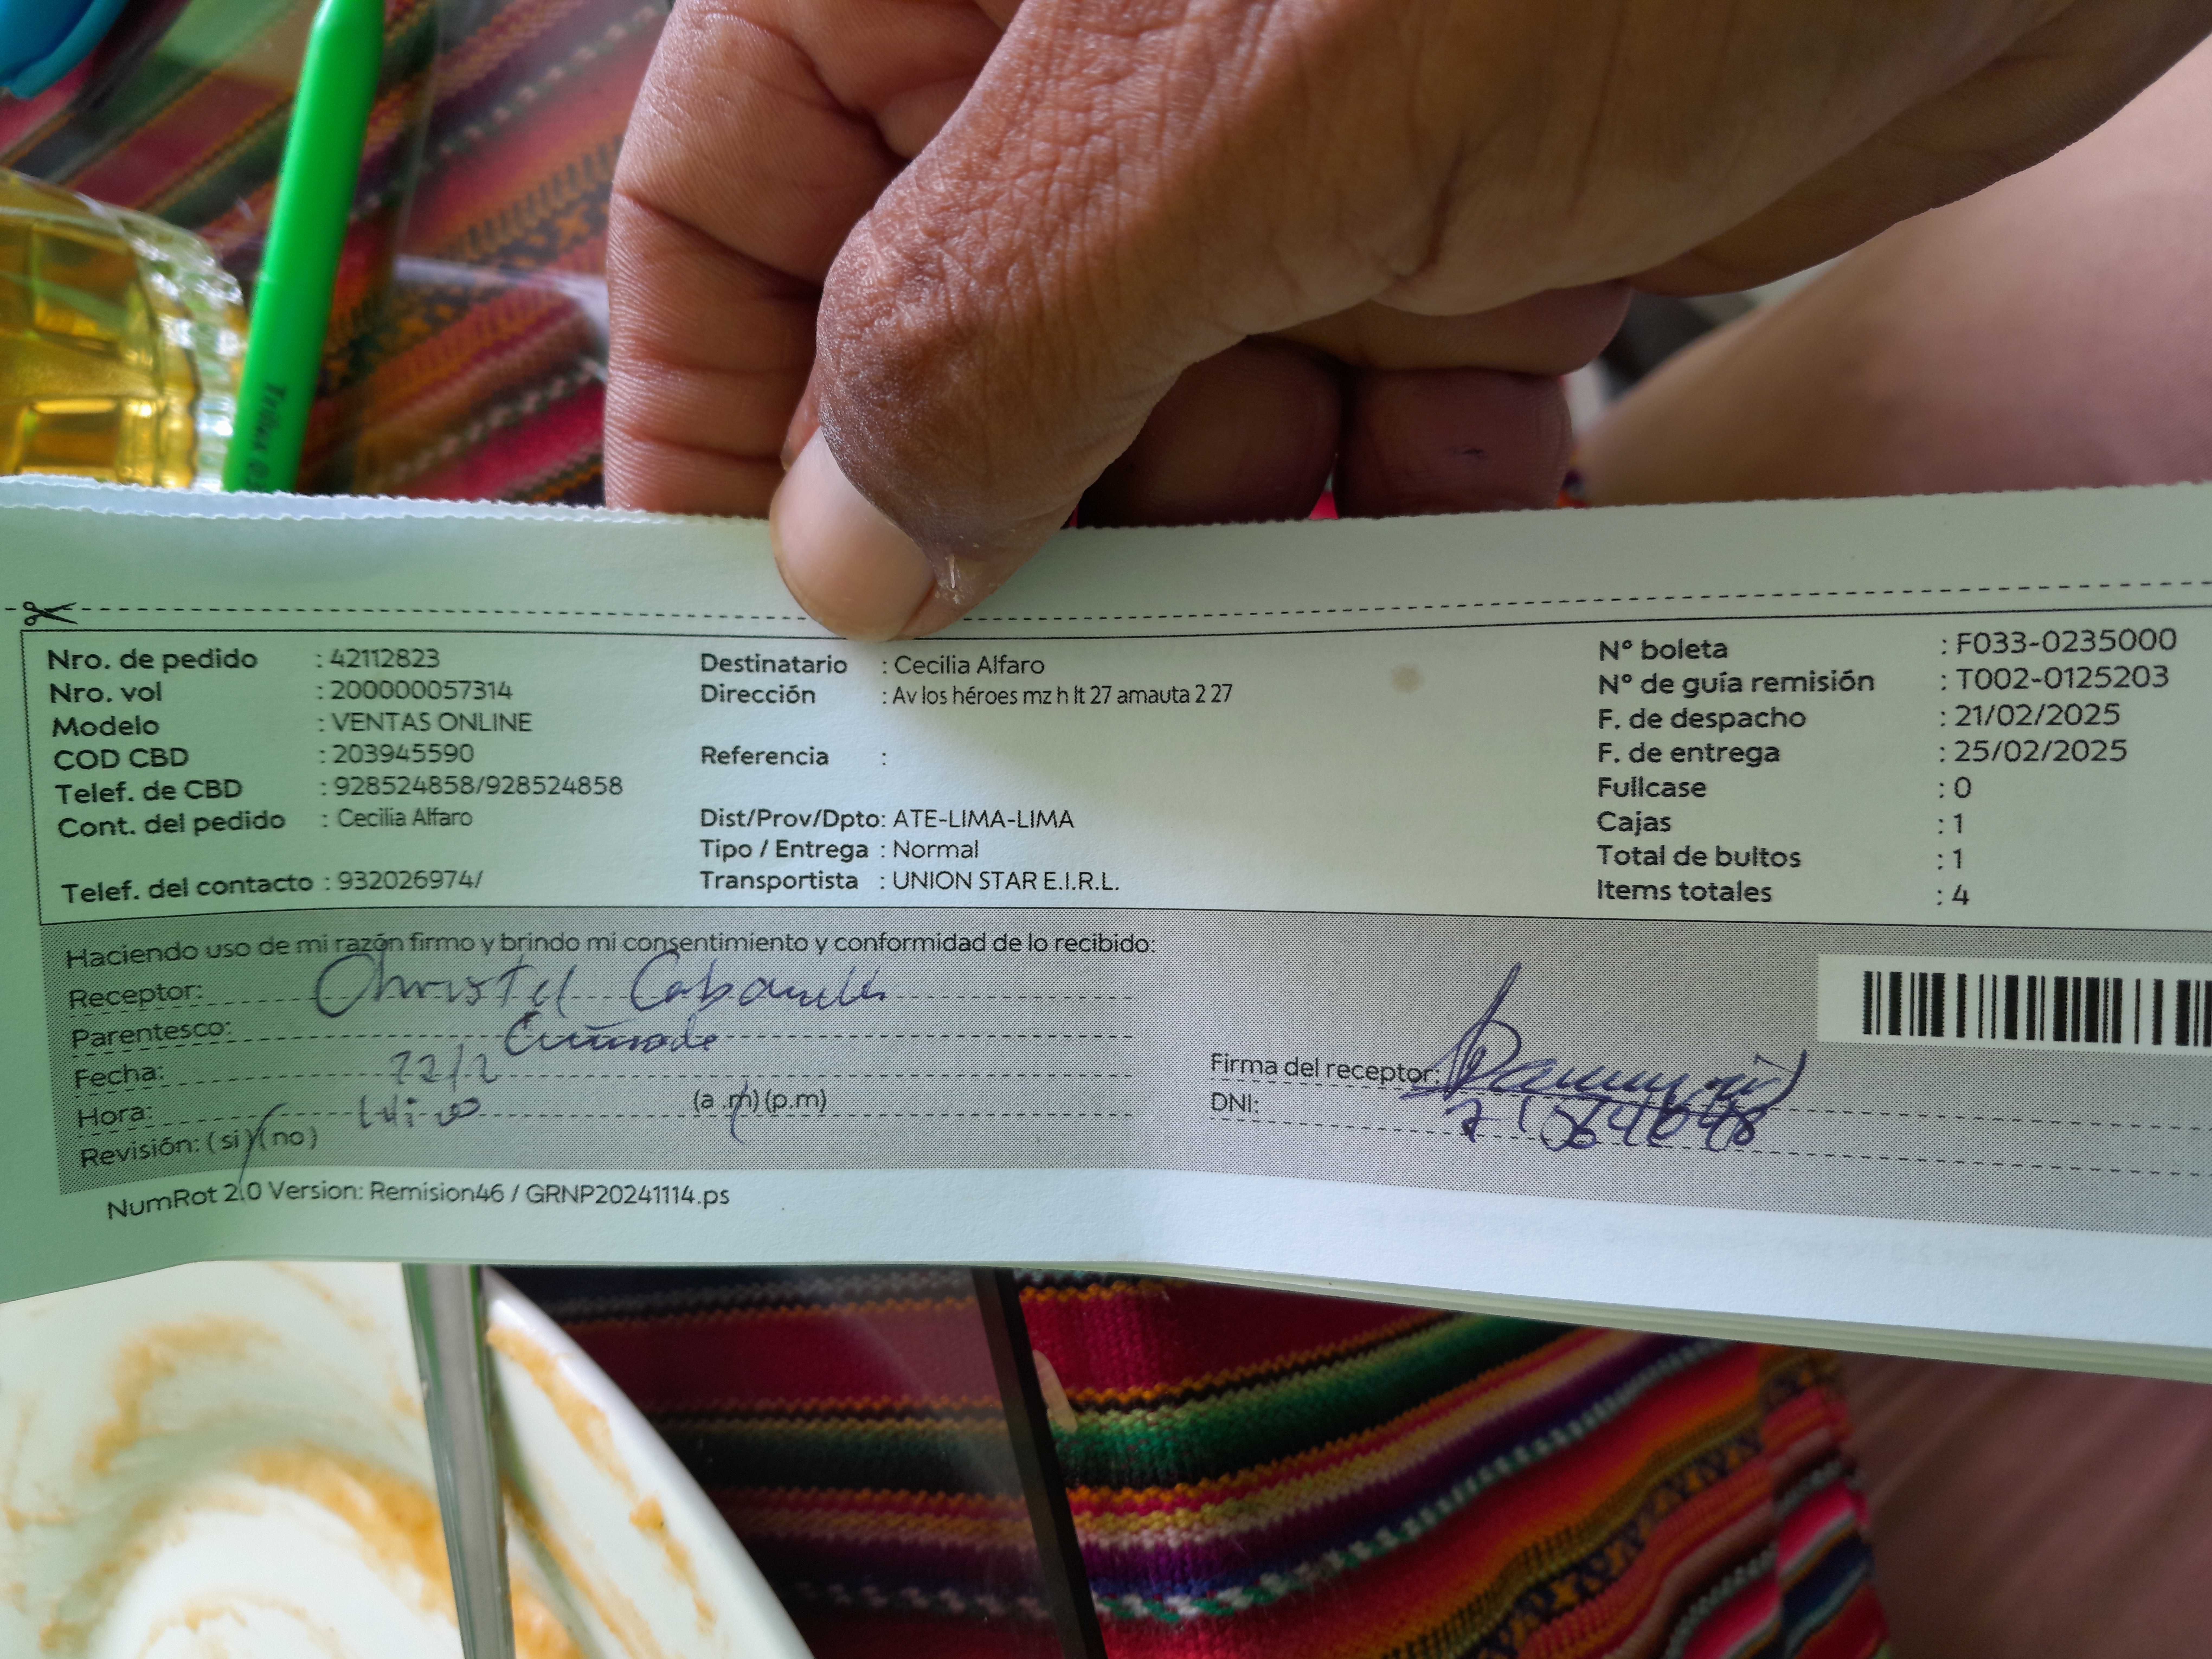 Trilux
Nro. de pedido : 42112823
Nro. vol : 200000057314
Modelo : VENTAS ONLINE
COD CBD : 203945590
Telef. de CBD : 928524858/928524858
Cont. del pedido : Cecilia Alfaro
Telef. del contacto : 932026974/
Destinatario : Cecilia Alfaro
Dirección : Av los héroes mz h lt 27 amauta 2 27
Referencia :
Dist/Prov/Dpto: ATE-LIMA-LIMA
Tipo / Entrega : Normal
Transportista : UNION STAR E.I.R.L.
N° boleta : F033-0235000
N° de guía remisión : T002-0125203
F. de despacho : 21/02/2025
F. de entrega : 25/02/2025
Fullcase : 0
Cajas : 1
Total de bultos : 1
Items totales : 4
Haciendo uso de mi razón firmo y brindo mi consentimiento y conformidad de lo recibido:
Receptor: Christel
Parentesco:
Fecha: 22/2
Hora: (a .m) (p.m)
Revisión: (si) (no)
Firma del receptor:
DNI:
NumRot 2.0 Version: Remision46 / GRNP20241114.ps